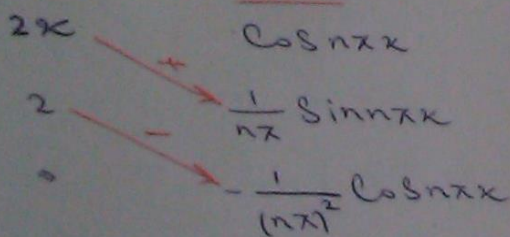 2x cos nπx
+
2 1/nπ sin nπx
−
0 - 1/(nπ)² cos nπx